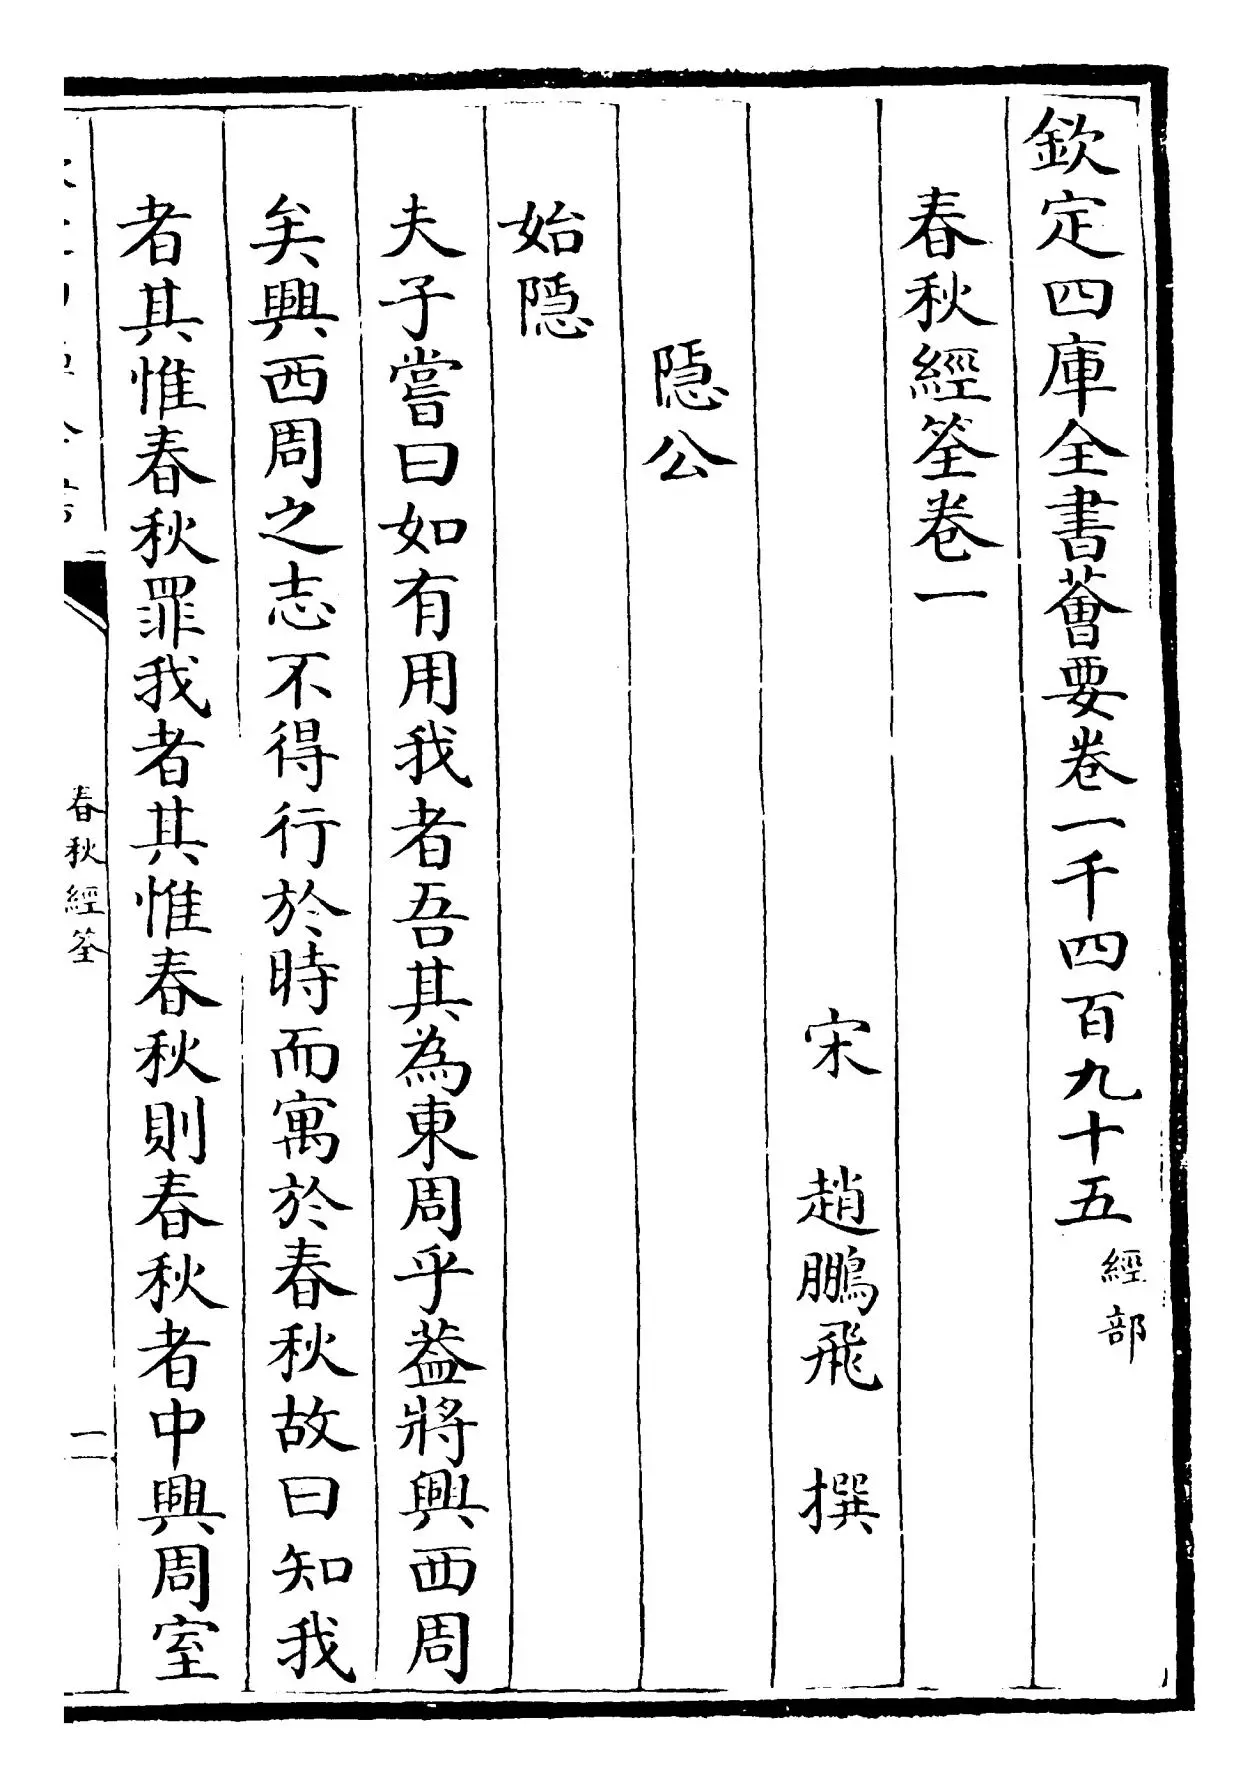 欽定四庫全書薈要卷一千四百九十五 經部
春秋經筌卷一
宋 趙鵬飛 撰
隱公
始隱
夫子嘗曰如有用我者吾其為東周乎葢將興西周
矣興西周之志不得行於時而寓於春秋故曰知我
者其惟春秋罪我者其惟春秋則春秋者中興周室
春秋經筌
一